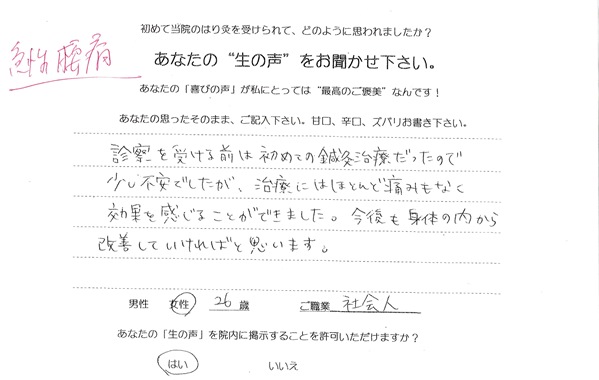 初めて当院のはり灸を受けられて、どのように思われましたか？
急性腰痛
あなたの“生の声”をお聞かせ下さい。
あなたの「喜びの声」が私にとっては“最高のご褒美”なんです！
あなたの思ったそのまま、ご記入下さい。甘口、辛口、ズバリお書き下さい。
診察を受ける前は初めての鍼灸治療だったので
少し不安でしたが、治療にはほとんど痛みもなく
効果を感じることができました。今後も身体の内から
改善していければと思います。
男性 女性 26 歳 ご職業 社会人
あなたの「生の声」を院内に掲示することを許可いただけますか？
はい いいえ